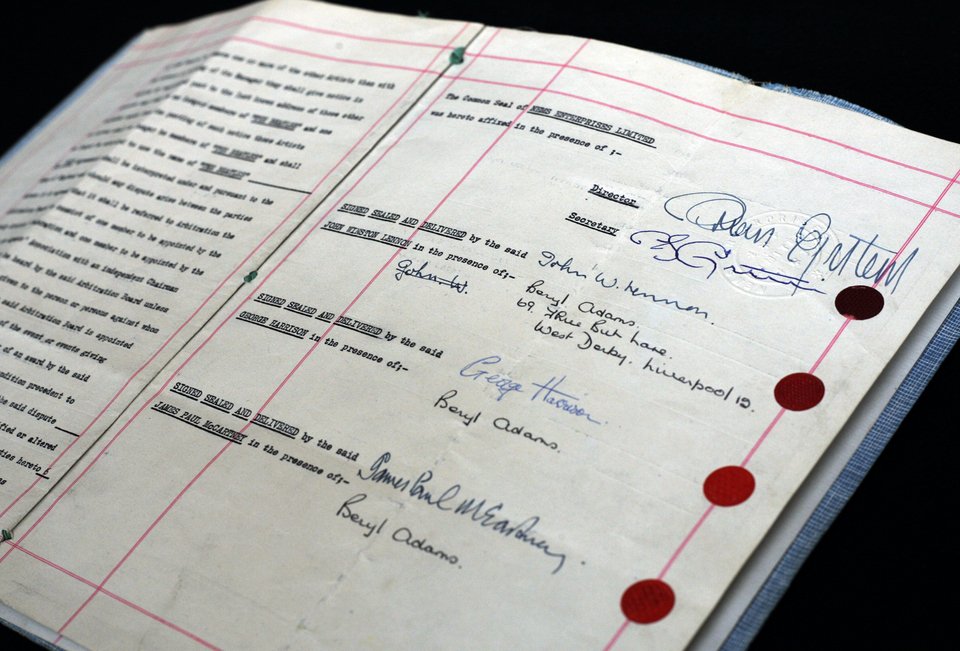 was or more of the other Artists then with
of the Manager they shall give notice in
sent to the last known address of those other
longer members of "THE BEATLES" and one
expiring of such notice these Artists
longer be members of "THE BEATLES" and shall
to use the name of "THE BEATLES"
shall be interpreted under and pursuant to the
should any dispute arise between the parties
it shall be referred to Arbitration the
consist of one member to be appointed by the
Managers and one member to be appointed by the
association with an independent Chairman
be heard by the said Arbitration Board unless
given to the person or persons against whom
said Arbitration Board is appointed
of the event or events giving
of an award by the said
condition precedent to
the said dispute
modified or altered
parties hereto 6
The Common Seal of NEMS ENTERPRISES LIMITED
was hereto affixed in the presence of ;-
Director
Brian Epstein
Secretary
SIGNED SEALED AND DELIVERED by the said
JOHN WINSTON LENNON in the presence of;-
John W. Lennon.
John W.
Beryl Adams.
69, Three Butt Lane.
West Derby. Liverpool 12.
SIGNED SEALED AND DELIVERED by the said
GEORGE HARRISON in the presence of;-
George Harrison.
Beryl Adams.
SIGNED SEALED AND DELIVERED by the said
JAMES PAUL McCARTNEY in the presence of;-
James Paul McCartney.
Beryl Adams.